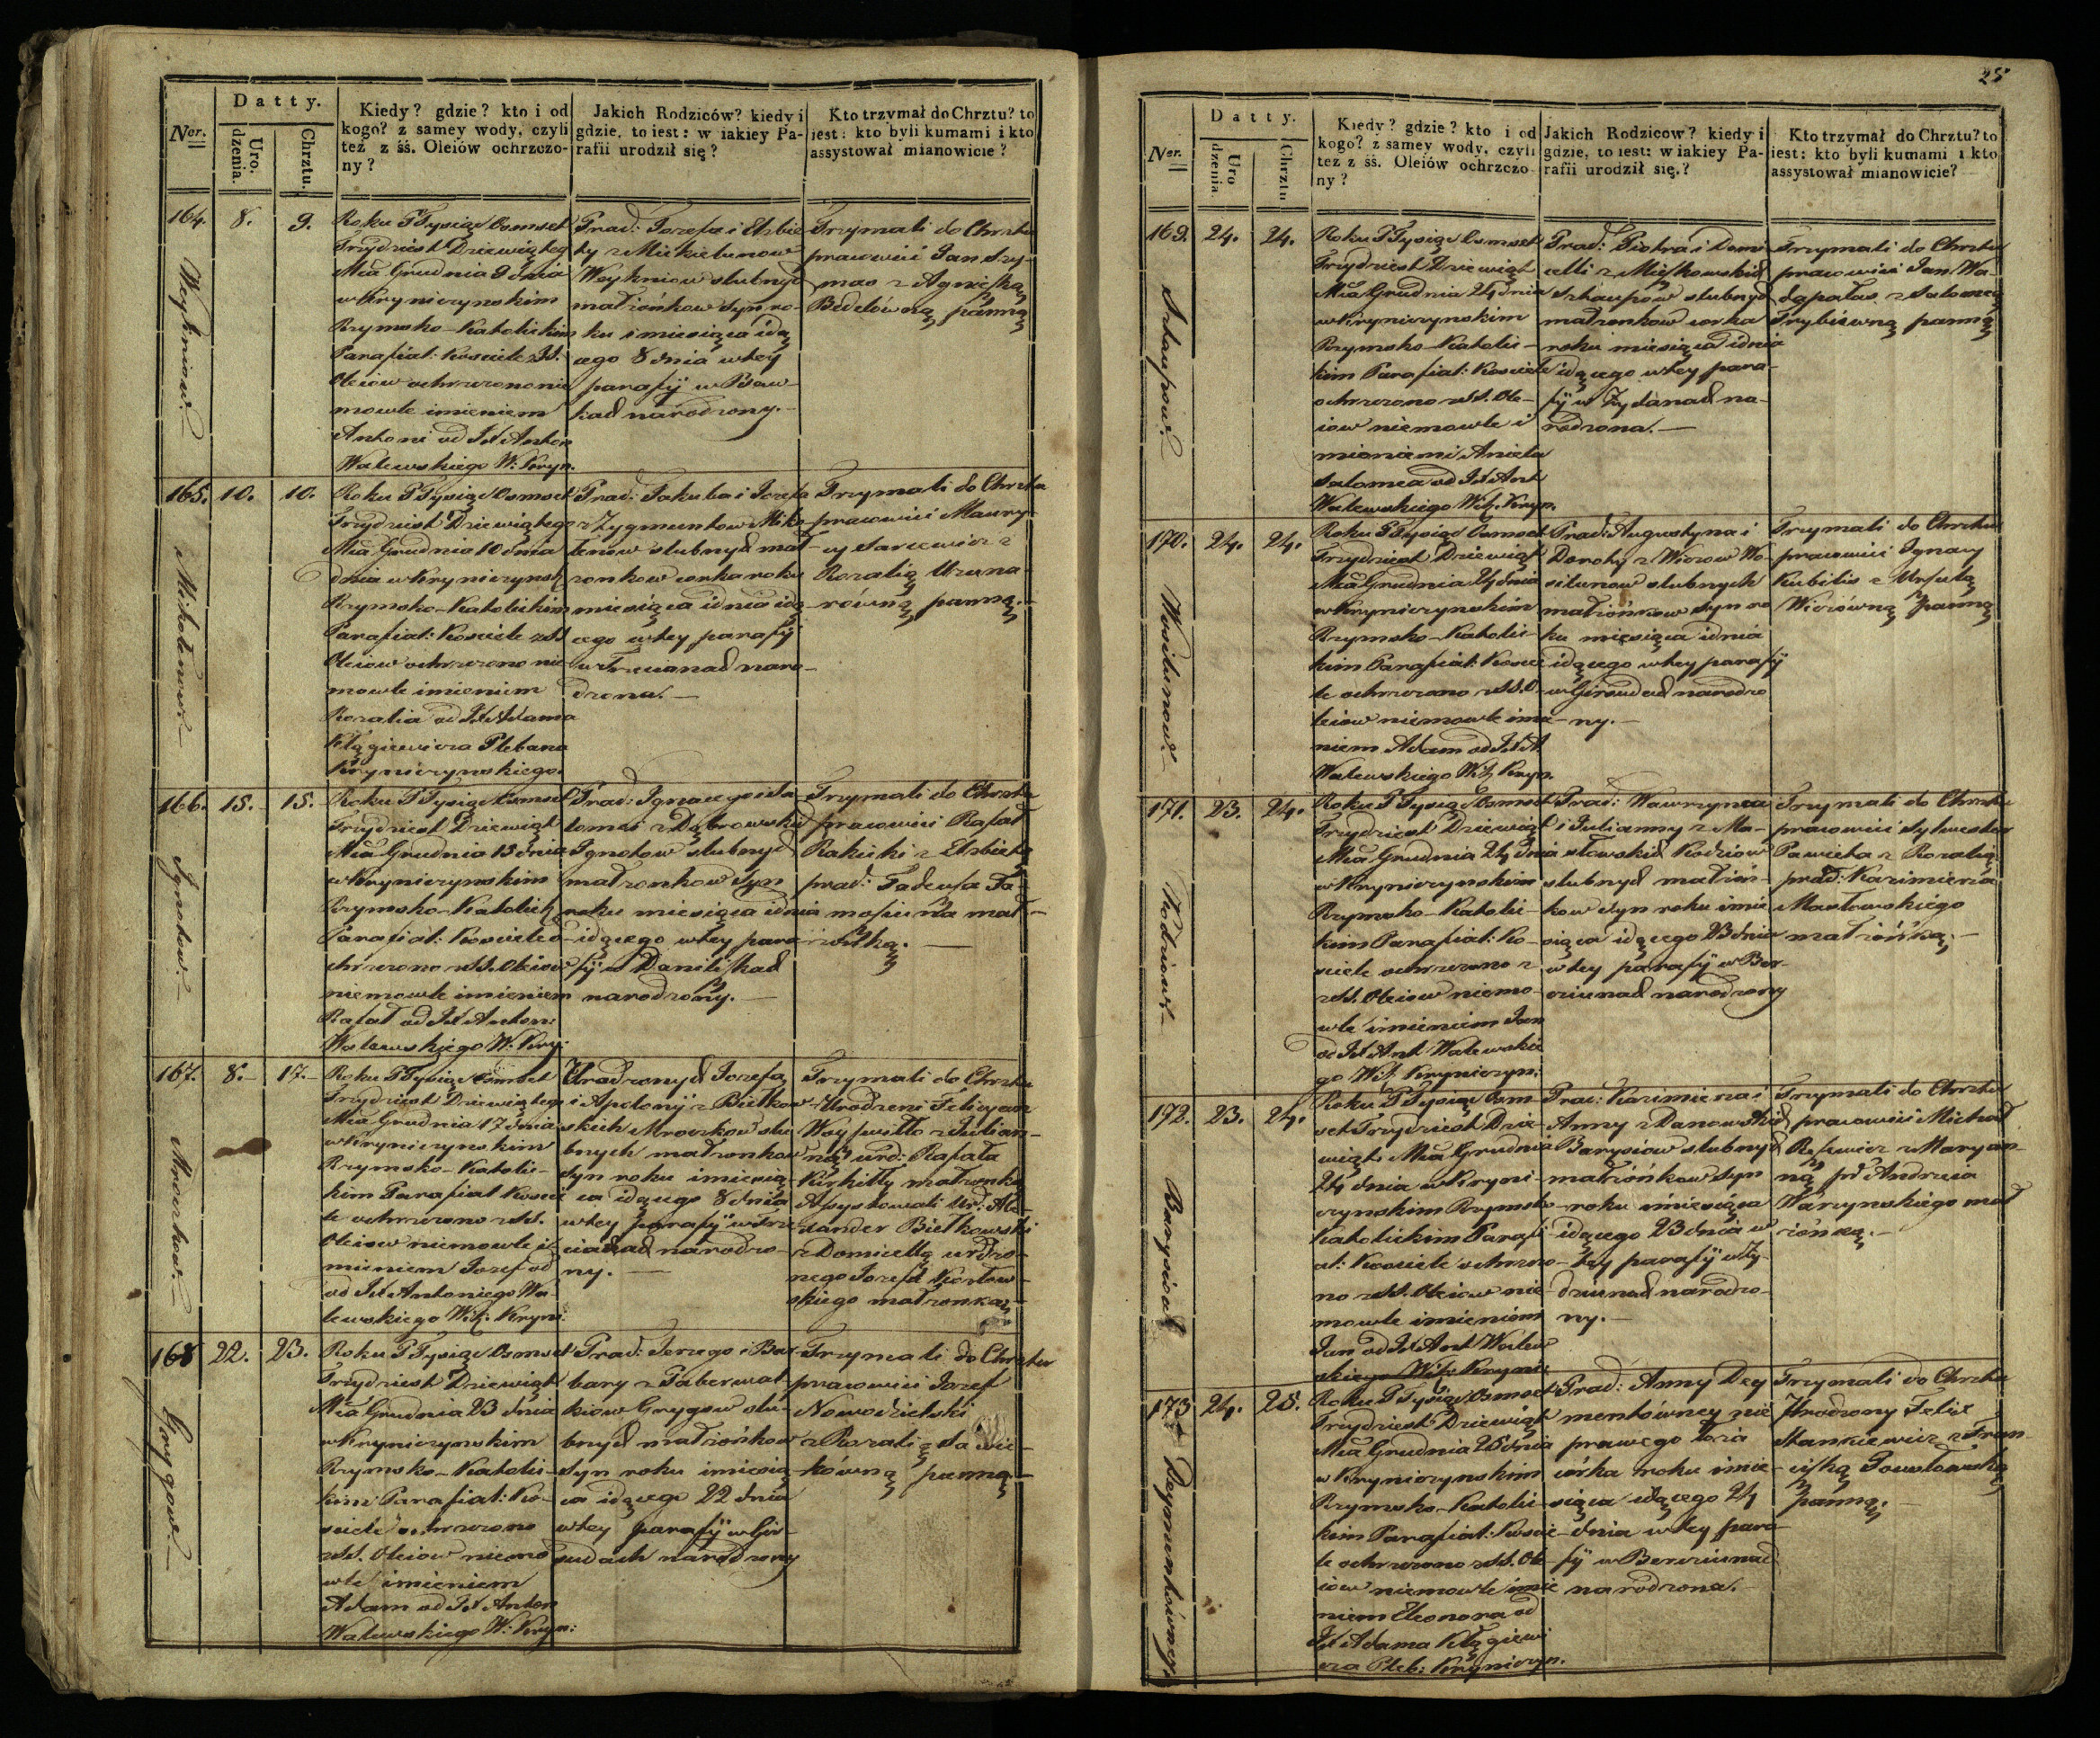 Datty.
Ner.
Uro.
dzenia.
Chrztu.
Kiedy? gdzie? kto i od
kogo? z samey wody, czyli
też z śś. Oleiów ochrzczo-
ny?
Jakich Rodziców? kiedy i
gdzie, to iest: w iakiey Pa-
rafii urodził się?
Kto trzymał do Chrztu? to
iest: kto byli kumami i kto
assystował mianowicie?
164.
8.
9.
Roku Tysiąc Osmset
Trzydziest Dziewiąteg
Mca Grudnia 9 dnia
w Kryniczynskim
Rzymsko-Katolickim
Parafial: Kościele z SS.
Oleiow ochrzczono nie
mowle imieniem
Antoni od JX Anton
Walewskiego W: Kryn.
Prac: Jozefa i Elzbie
ty z Mickielunow
Weykniow slubnych
małżonkow syn ro-
ku i miesiąca idą
cego 8 dnia w tey
parafij w
narodzony.
Trzymali do Chrztu
pracowici Jan Szy-
mas z Agnieszką
Bedelówną panną
165.
10.
10.
Mikolunow
Roku Tysiąc Osmset
Trzydziest Dziewiątego
Mca Grudnia 10 dnia
dnia w Kryniczynsk
Rzymsko-Katolickim
Parafial: Kościele z SS
Oleiow ochrzczono nie
mowle imieniem
Rozalia od JX Adama
Kłągiewicza Plebana
Krynicznynskiego.
Prac: Jakuba i Jozefa
z Zygmuntow Miko
lunow slubnych mał
zonkow corka roku
miesiąca i dnia idą
cego w tey parafij
w narod-
zona.
Trzymali do Chrztu
pracowici Maury-
cy z
Rozalią
panną.
166.
15.
15.
Ignotow.
Roku Tysiąc Osmset
Trzydziest Dziewiąt
Mca Grudnia 15 dnia
w Kryniczynskim
Rzymsko-Katolick
Parafial: Kościele o
chrzczono z SS. Oleiow
niemowle imieniem
Rafał od JX Anton:
Walewskiego W. Kry:
Prac: Ignacego i Sa
lomei z Dąbrowskich
Ignotow slubnych
małzonkow syn
roku miesiąca i dnia
idącego w tey para
fij w Daniliszkach
narodzony.
Trzymali do Chrztu
pracowici Rafał
Rakicki z Elzbietą
prac: Tadeusza
mał-
żonką.
167.
8.
17.
Mroczkow.
Roku Tysiąc Osmset
Trzydziest Dziewiąteg
Mca Grudnia 17 dnia
w Kryniczynskim
Rzymsko-Katolic-
kim Parafial Kosci
le ochrzczono z SS.
Oleiow niemowle i
mieniem Jozef od
od JX Antoniego Wa-
lewskiego Wik. Kryn:
Urodzonych Jozefa
i Apolonij z Bielkow
skich Mroczkow slu
bnych małzonkow
syn roku i miesią-
ca idącego 8 dnia
w tey parafij w
narodzo-
ny.
Trzymali do Chrztu
Urodzeni Felicyan
Woyszwiłło z Julian-
ną urd: Rafała
Kurkilly małzonką
Assystowali Ur: Ale-
xander Bielkowski
z Domicellą urdzo-
nego Jozefa
skiego małzonką
168
22.
23.
Grygow.
Roku Tysiąc Osmset
Trzydziest Dziewiąt
Mca Grudnia 23 dnia
w Krynicznynskim
Rzymsko-Katolic-
kim Parafial: Ko-
sciele ochrzczono
z SS. Oleiow niemo
wle imieniem
Adam od JX Anton
Walewskiego W: Kryn:
Prac: Jerzego i Bar
bary z Taberwal-
kiow Grygow slu-
bnych małżonkow
syn roku i miesią-
ca idącego 22 dnia
w tey parafij w Gir-
sudach narodzony
Trzymali do Chrztu
pracowici Jozef
Nowodzielski
z Rozalią Sawic-
kówną panną
25
Datty.
Ner.
Uro
dzenia.
Chrztu
Kiedy? gdzie? kto i od
kogo? z samey wody, czyli
też z śś. Oleiów ochrzczo-
ny?
Jakich Rodziców? kiedy i
gdzie, to iest: w iakiey Pa-
rafii urodził się.?
Kto trzymał do Chrztu? to
iest: kto byli kumami i kto
assystował mianowicie?
169.
24.
24.
Szkaupow.
Roku Tysiąc Osmset
Trzydziest Dziewiąt
Mca Grudnia 24 dnia
w Krynicznynskim
Rzymsko-Katolic-
kim Parafial: Kosciele
ochrzczono z SS. Ole-
iow niemowle i
mionami Aniela
Salomea od JX Ant
Walewskiego Wik. Kryn.
Prac: Piotra i Domi
celli z Mieszkowskich
Szkaupow slubnych
małzonkow corka
roku miesiąca i dnia
idącego w tey para-
fij w na-
rodzona.
Trzymali do Chrztu
pracowici Jan Wa-
dapalas z Salomeą
panną
170.
24.
24.
Wosilunow.
Roku Tysiąc Osmset
Trzydziest Dziewiąt
Mca Grudnia 24 dnia
w Krynicznynskim
Rzymsko-Katolic-
kim Parafial: Koscie
le ochrzczono z SS. O-
leiow niemowle imie
niem Adam od JX A.
Walewskiego Wik. Kryn.
Prac: Augustyna i
Doroty z Wicow Wo-
silunow slubnych
małżonkow syn ro
ku miesiąca i dnia
idącego w tey parafij
w Girsudach narodzo
ny.
Trzymali do Chrztu
pracowici Ignacy
Kubilis z Urszulą
Wicówną panną
171.
23.
24.
Kodziow.
Roku Tysiąc Osmset
Trzydziest Dziewiąt
Mca Grudnia 24 dnia
w Krynicznynskim
Rzymsko-Katolic-
kim Parafial: Ko-
sciele ochrzczono z
z SS. Oleiow niemo-
wle imieniem Jan
od JX Ant Walewskie
go Wik Krynicznyn:
Prac: Wawrzynca
i Julianny z Ma-
słowskich Kodziow
slubnych małżon-
kow syn roku i mie
siąca idącego 23 dnia
w tey parafij w Ber-
ziunach narodzony
Trzymali do Chrztu
pracowici Sylwester
Pawicha z Rozalią
prac: Kazimierza
Masłowskiego
małżonką.
172.
23.
24.
Barysiow
Roku Tysiąc Osm-
set Trzydziest Dzie-
wiąt. Mca Grudnia
24 dnia w Kryni-
czynskim Rzymsko-
Katolickim Parafi-
al: Kosciele ochrzczo-
no z SS. Oleiow nie-
mowle imieniem
Jan od JX Ant Walew
skiego Wik: Kryni
Prac: Kazimierza i
Anny z Danowskich
Barysiow slubnych
małżonkow syn
roku i miesiąca
idącego 23 dnia w
tey parafij w
narodzo-
ny.
Trzymali do Chrztu
pracowici Michał
z Maryan-
ną pr Andrzeia
Warzynskiego mał
żonką.
173
24.
25.
Deymentówney.
Roku Tysiąc Osmset
Trzydziest Dziewiąt
Mca Grudnia 25 dnia
w Krynicznynskim
Rzymsko-Katolic-
kim Parafial: Koscie-
le ochrzczono z SS. Ole
iow niemowle imie
niem Eleonora od
JX Adama Kłągiewi
cza Pleb: Krynicznyn.
Prac: Anny Dey
mentówney nie
prawego łoża
córka roku i mie-
siąca idącego 24
dnia w tey para-
fij w Berziunach
narodzona.
Trzymali do Chrztu
Urodzony Felix
Stankiewicz z Fran-
ciszką
panną.